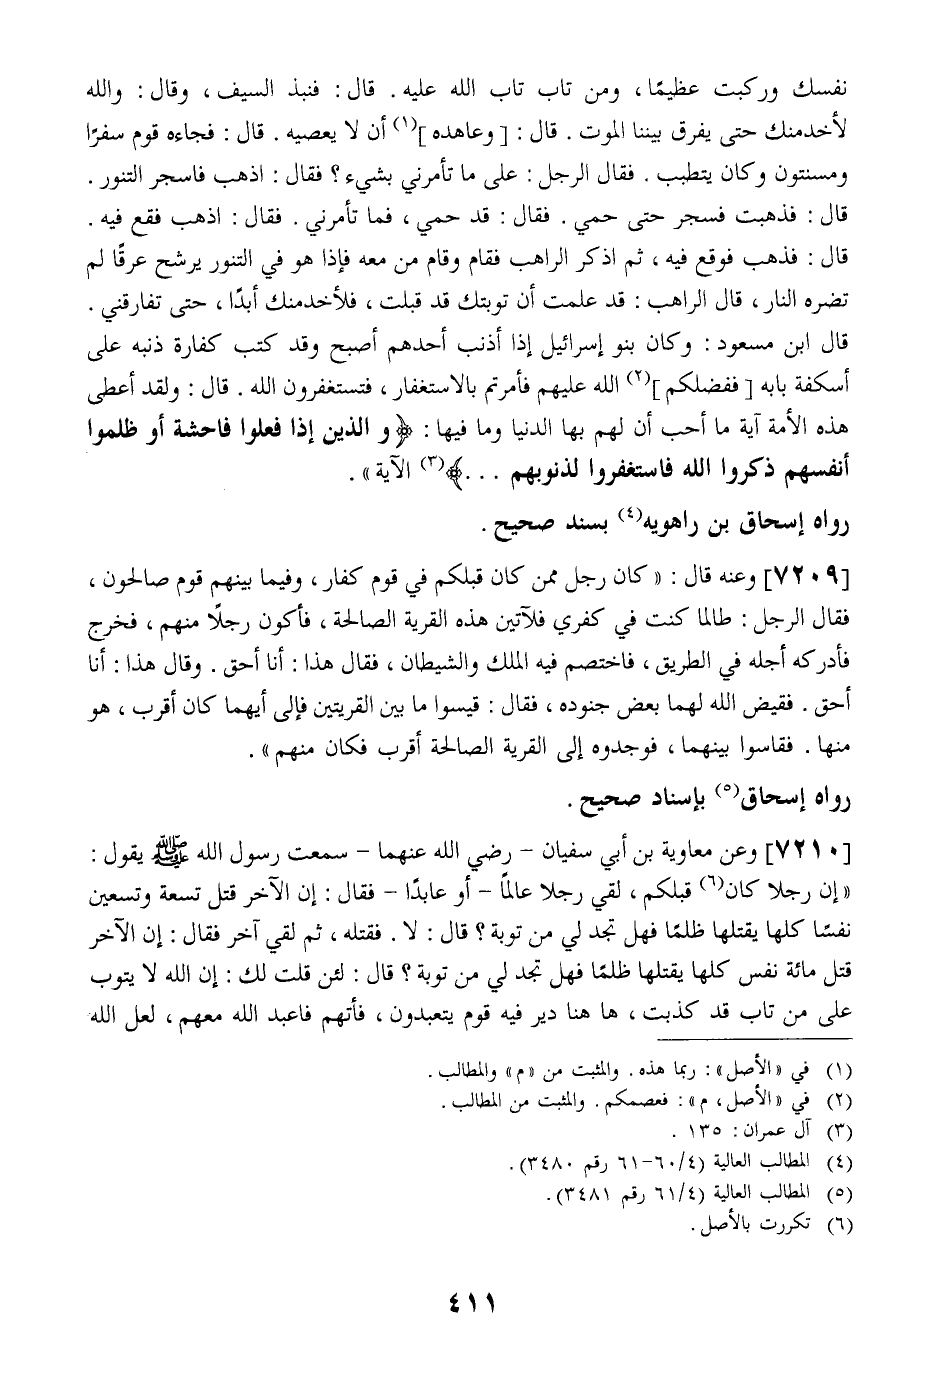 نفسك وركبت عظيمًا ، ومن تاب تاب الله عليه . قال : فنبذ السيف ، وقال : والله
لأخدمنك حتى يفرق بيننا الموت . قال : [ وعاهده ](١) أن لا يعصيه . قال : فجاءه قوم سفرًا
ومسنتون وكان يتطبب . فقال الرجل : على ما تأمرني بشيء ؟ فقال : اذهب فاسجر التنور .
قال : فذهبت فسجر حتى حمي . فقال : قد حمي ، فما تأمرني . فقال : اذهب فقع فيه .
قال : فذهب فوقع فيه ، ثم اذكر الراهب فقام وقام من معه فإذا هو في التنور يرشح عرقًا لم
تضره النار ، قال الراهب : قد علمت أن توبتك قد قبلت ، فلأخدمنك أبدًا ، حتى تفارقني .
قال ابن مسعود : وكان بنو إسرائيل إذا أذنب أحدهم أصبح وقد كتب كفارة ذنبه على
أسكفة بابه [ ففضلكم ](٢) الله عليهم فأمرتم بالاستغفار ، فتستغفرون الله . قال : ولقد أعطى
هذه الأمة آية ما أحب أن لهم بها الدنيا وما فيها : ﴿ و الذين إذا فعلوا فاحشة أو ظلموا
أنفسهم ذكروا الله فاستغفروا لذنوبهم . . .﴾(٣) الآية » .
رواه إسحاق بن راهويه(٤) بسند صحيح .
[٧٢٠٩] وعنه قال : « كان رجل ممن كان قبلكم في قوم كفار ، وفيما بينهم قوم صالحون ،
فقال الرجل : طالما كنت في كفري فلآتين هذه القرية الصالحة ، فأكون رجلًا منهم ، فخرج
فأدركه أجله في الطريق ، فاختصم فيه الملك والشيطان ، فقال هذا : أنا أحق . وقال هذا : أنا
أحق . فقيض الله لهما بعض جنوده ، فقال : قيسوا ما بين القريتين فإلى أيهما كان أقرب ، هو
منها . فقاسوا بينهما ، فوجدوه إلى القرية الصالحة أقرب فكان منهم » .
رواه إسحاق(٥) بإسناد صحيح .
[٧٢١٠] وعن معاوية بن أبي سفيان – رضي الله عنهما – سمعت رسول الله ﷺ يقول :
« إن رجلا كان(٦) قبلكم ، لقي رجلا عالمًا – أو عابدًا – فقال : إن الآخر قتل تسعة وتسعين
نفسًا كلها يقتلها ظلمًا فهل تجد لي من توبة ؟ قال : لا . فقتله ، ثم لقي آخر فقال : إن الآخر
قتل مائة نفس كلها يقتلها ظلمًا فهل تجد لي من توبة ؟ قال : لئن قلت لك : إن الله لا يتوب
على من تاب قد كذبت ، ها هنا دير فيه قوم يتعبدون ، فأتهم فاعبد الله معهم ، لعل الله
(١) في «الأصل» : ربما هذه . والمثبت من «م» والمطالب .
(٢) في «الأصل ، م» : فعصمكم . والمثبت من المطالب .
(٣) آل عمران : ١٣٥ .
(٤) المطالب العالية (٤/ ٦٠-٦١ رقم ٣٤٨٠) .
(٥) المطالب العالية (٤/ ٦١ رقم ٣٤٨١) .
(٦) تكررت بالأصل .
٤١١